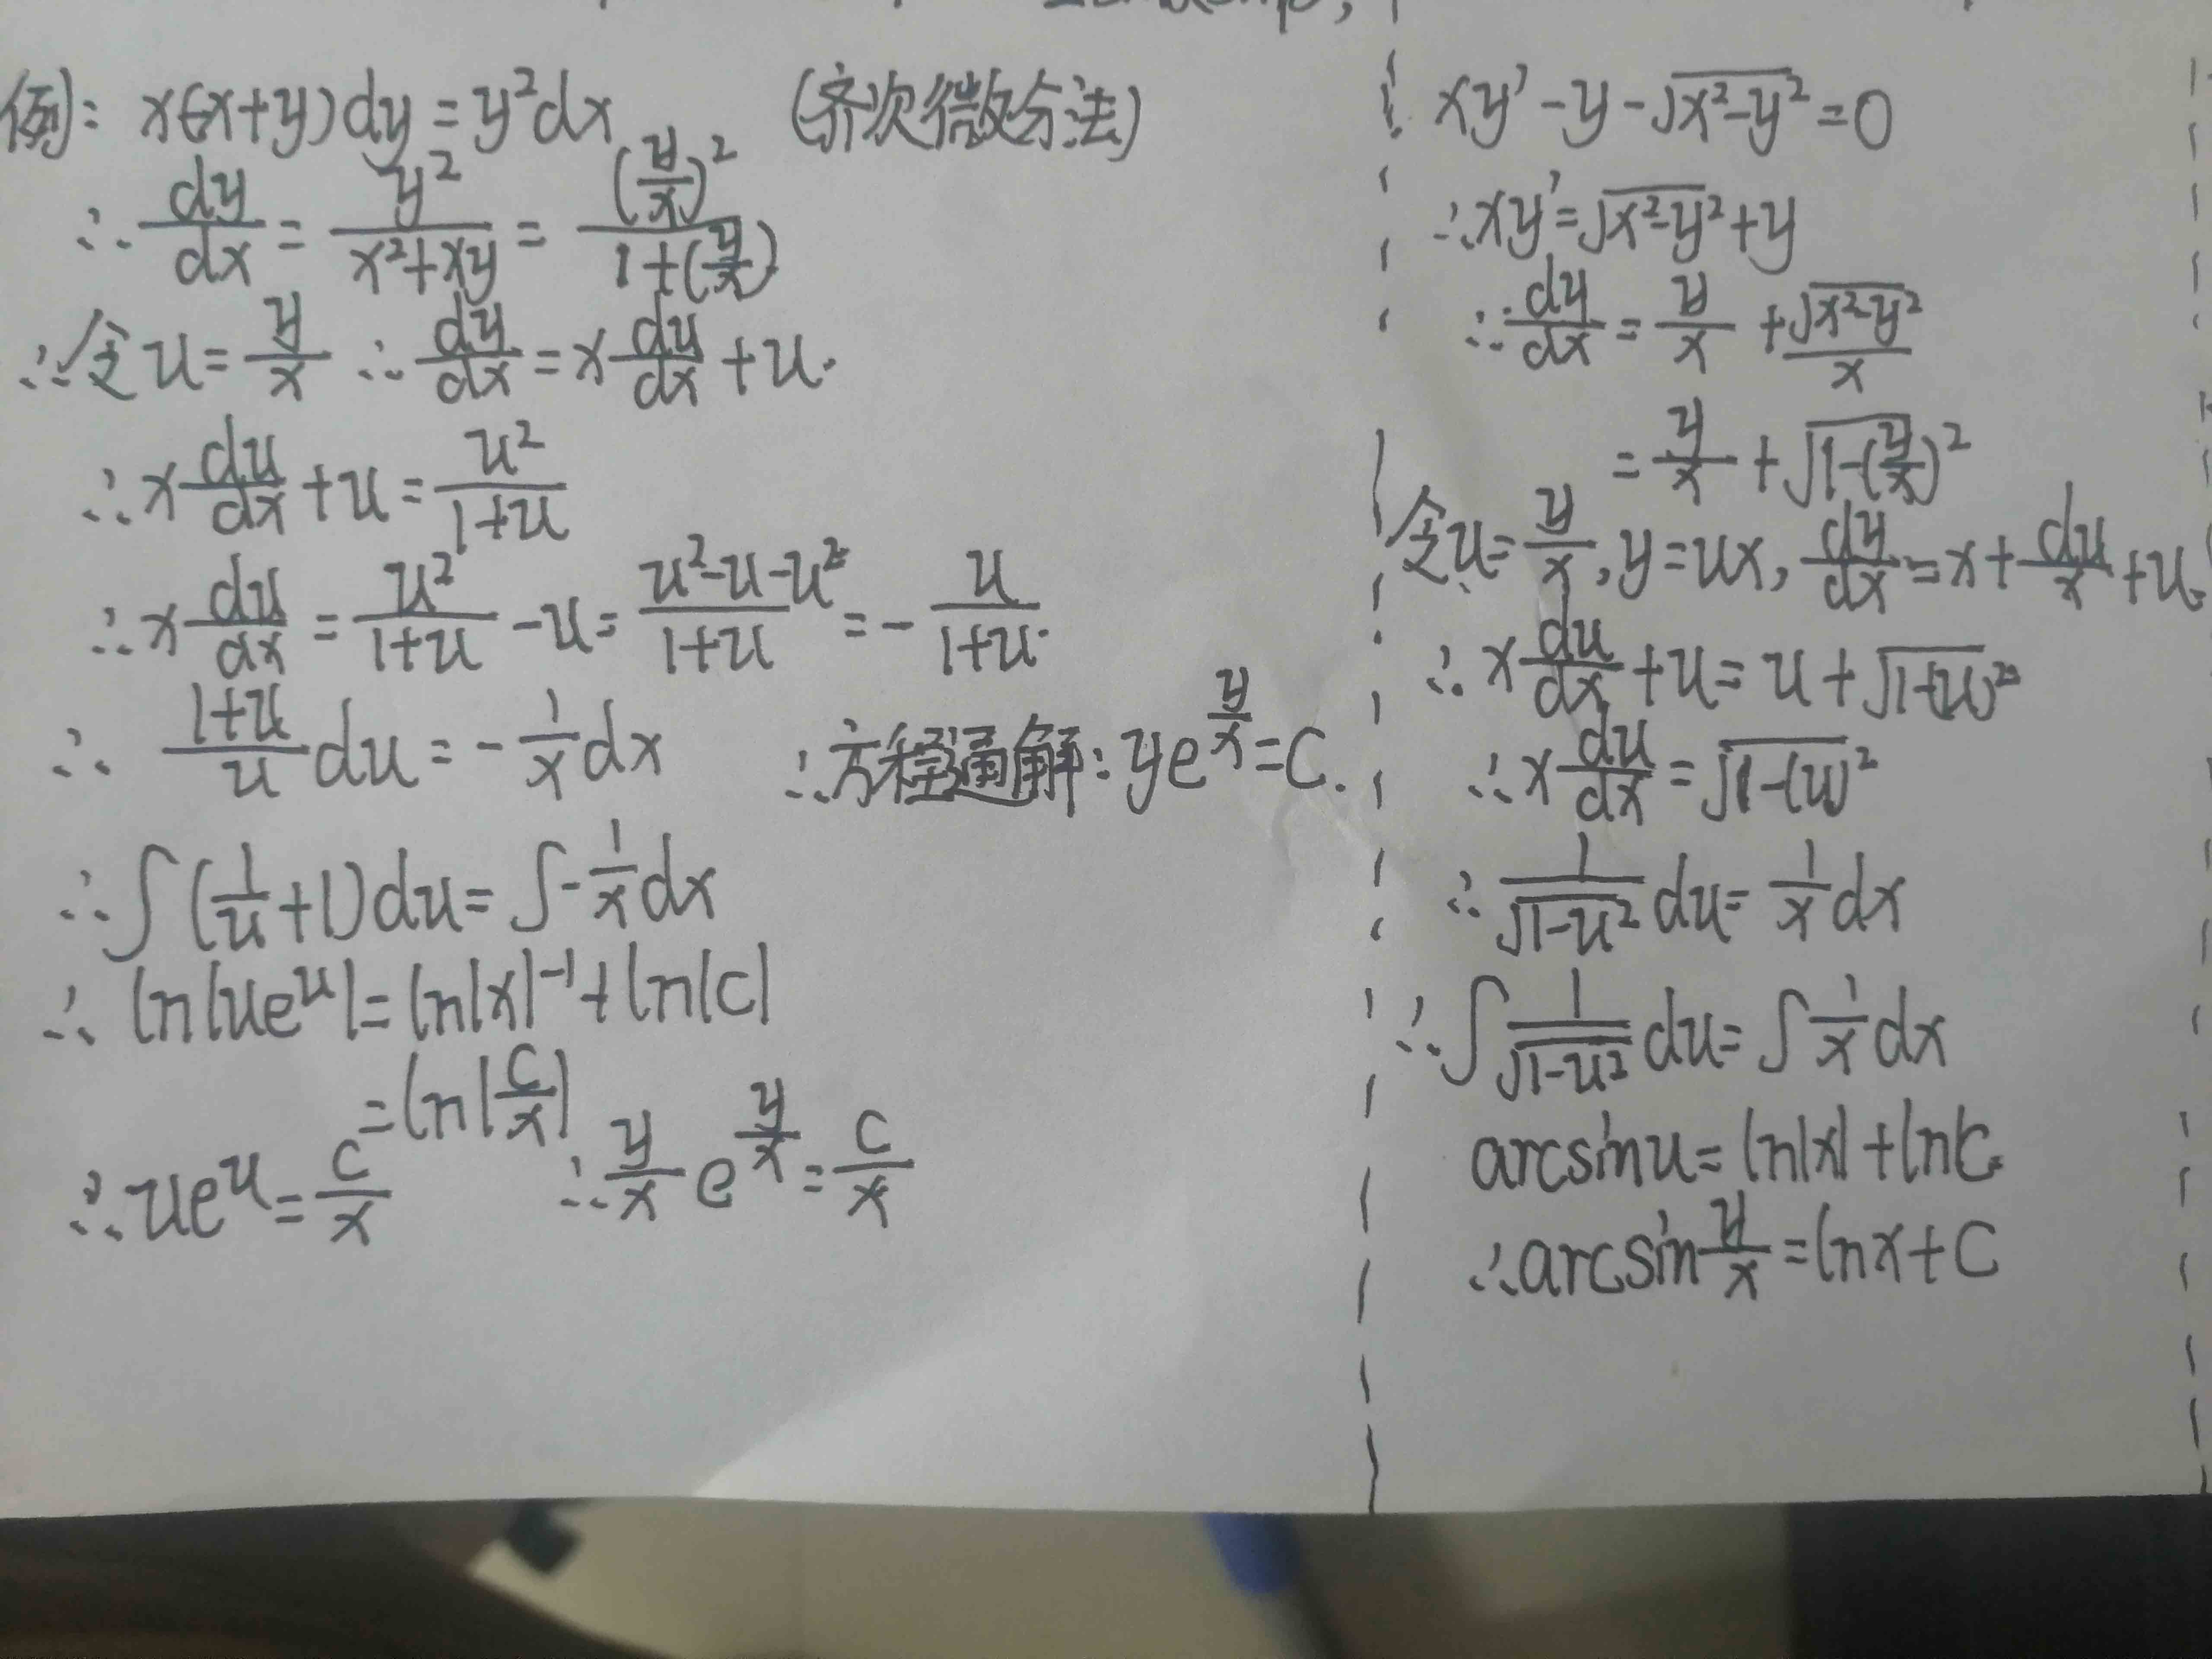 例: x(x+y)dy=y²dx (齐次微分法)
∴ dy/dx = y²/(x²+xy) = (y/x)²/(1+(y/x))
∴ 令u=y/x ∴ dy/dx = x du/dx +u.
∴ x du/dx +u = u²/(1+u)
∴ x du/dx = u²/(1+u) -u = (u²-u-u²)/(1+u) = - u/(1+u).
∴ (1+u)/u du = - 1/x dx
∴ ∫(1/u +1)du = ∫- 1/x dx
∴ ln|ue^u| = ln|x|⁻¹+ln|c|
= ln|c/x|
∴ ue^u = c/x ∴ y/x e^(y/x) = c/x
∴ 方程通解: ye^(y/x) = C.
xy'-y-√(x²-y²)=0
∴ xy'=√(x²-y²)+y
∴ dy/dx = y/x + √(x²-y²)/x
= y/x + √(1-(y/x)²)
令u=y/x, y=ux, dy/dx = x+ du/x +u.
∴ x du/dx +u = u+√(1-(u)²)
∴ x du/dx = √(1-(u)²)
∴ 1/√(1-u²) du = 1/x dx
∴ ∫ 1/√(1-u²) du = ∫ 1/x dx
arcsinu = ln|x|+ln|c
∴ arcsin y/x = lnx+C